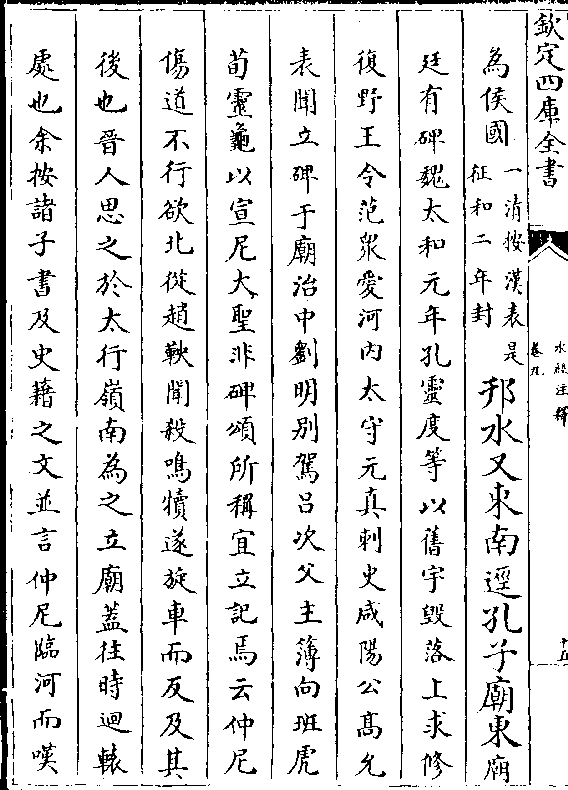 欽定四庫全書
水經注釋
卷九
十五
為侯國一清按漢表是征和二年封邘水又東南逕孔子廟東廟
廷有碑魏太和元年孔靈度等以舊宇毀落上求修
復野王令范眾愛河內太守元真刺史咸陽公高允
表聞立碑于廟治中劉明別駕呂次父主簿向班虎
荀靈龜以宣尼大聖非碑頌所稱宜立記焉云仲尼
傷道不行欲北從趙鞅聞殺鳴犢遂旋車而反及其
後也晉人思之於太行嶺南為之立廟蓋往時迴轅
處也余按諸子書及史籍之文並言仲尼臨河而嘆